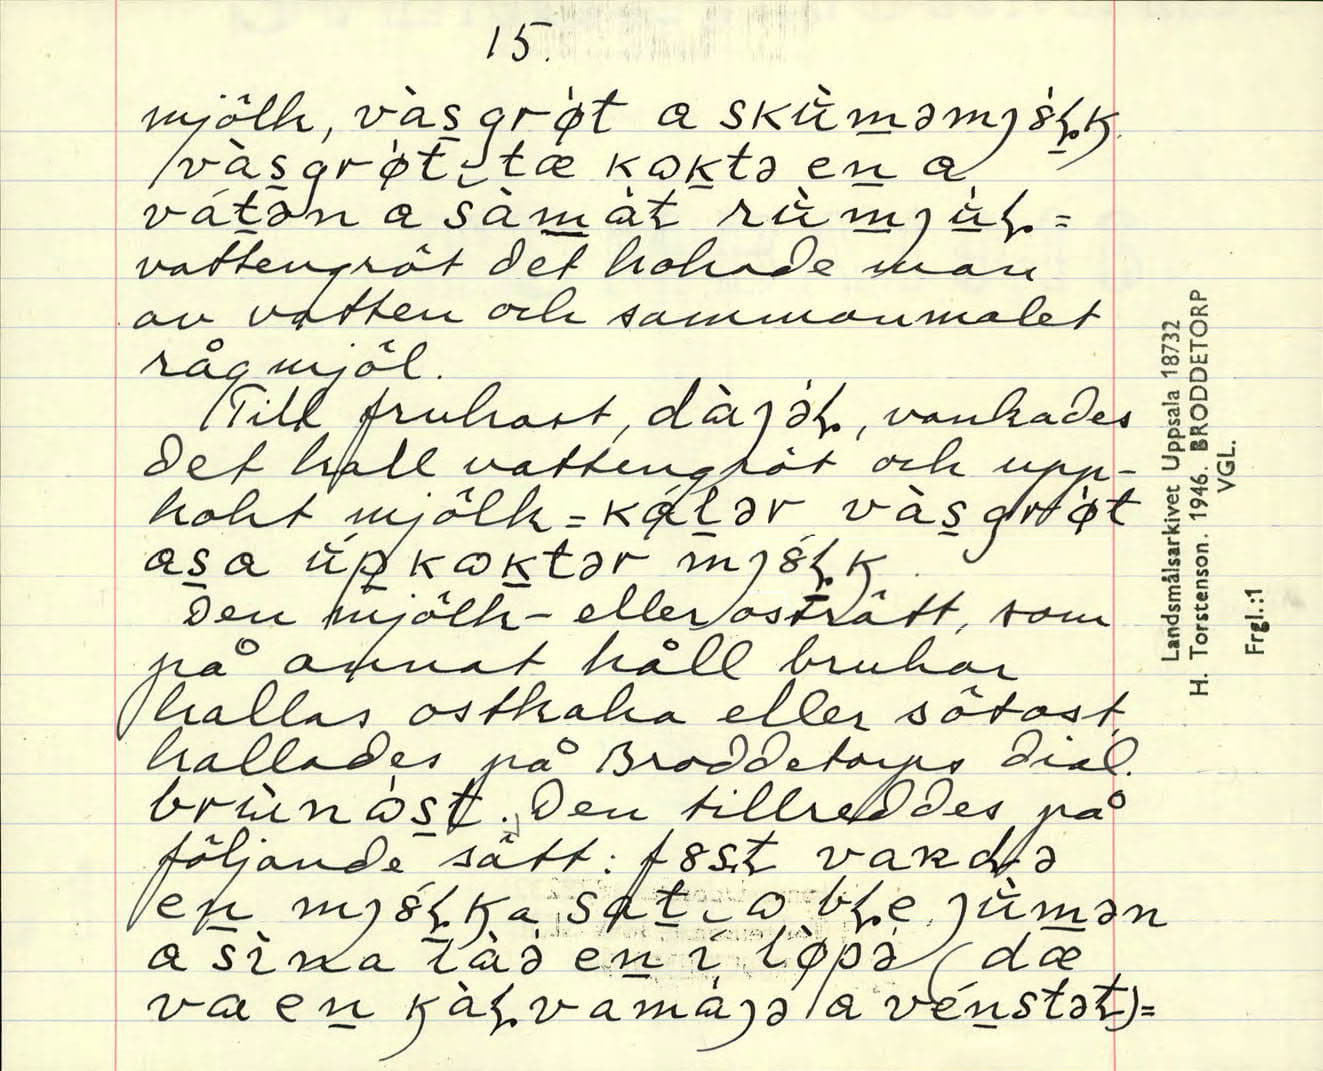 15.
mjölk, vàs̲grø̀t a skùm̲əmȷ8̀ɬ̲ⱪ.
vàs̲grø̀t, tæ kɷk̲tə en̲ a
vát̲ən a sàm̲àt rùm̲ȷù̲ɬ. =
vattengröt det kokade man
av vatten och sammanmalet
rågmjöl.
Till frukost, dàȷə̀ɬ, vankades
det kall vattengröt och upp-
kokt mjölk = kál̲ər vàs̲grø̀t
as̲a úp̲kɷk̲tər mȷ8́ɬ̲ⱪ.
Den mjölk- eller osträtt, som
på annat håll brukar
kallas ostkaka eller sötost,
kallades på Broddetorps dial.
brùnɷ̀s̲t. Den tillreddes på
följande sätt: f8st vaʀdɬə
en̲ mȷ8́ɬ̲ⱪa, sat̲, ɷ bɬe ȷùm̲ən
a sìna làə̀ en̲ í lø̀pə̀ (dæ
væ en̲ ⱪàɬvamàȷə a vén̲stət) =
Landsmålsarkivet Uppsala 18732
H. Torstenson. 1946. BRODDETORP
VGL.
Frgl.:1